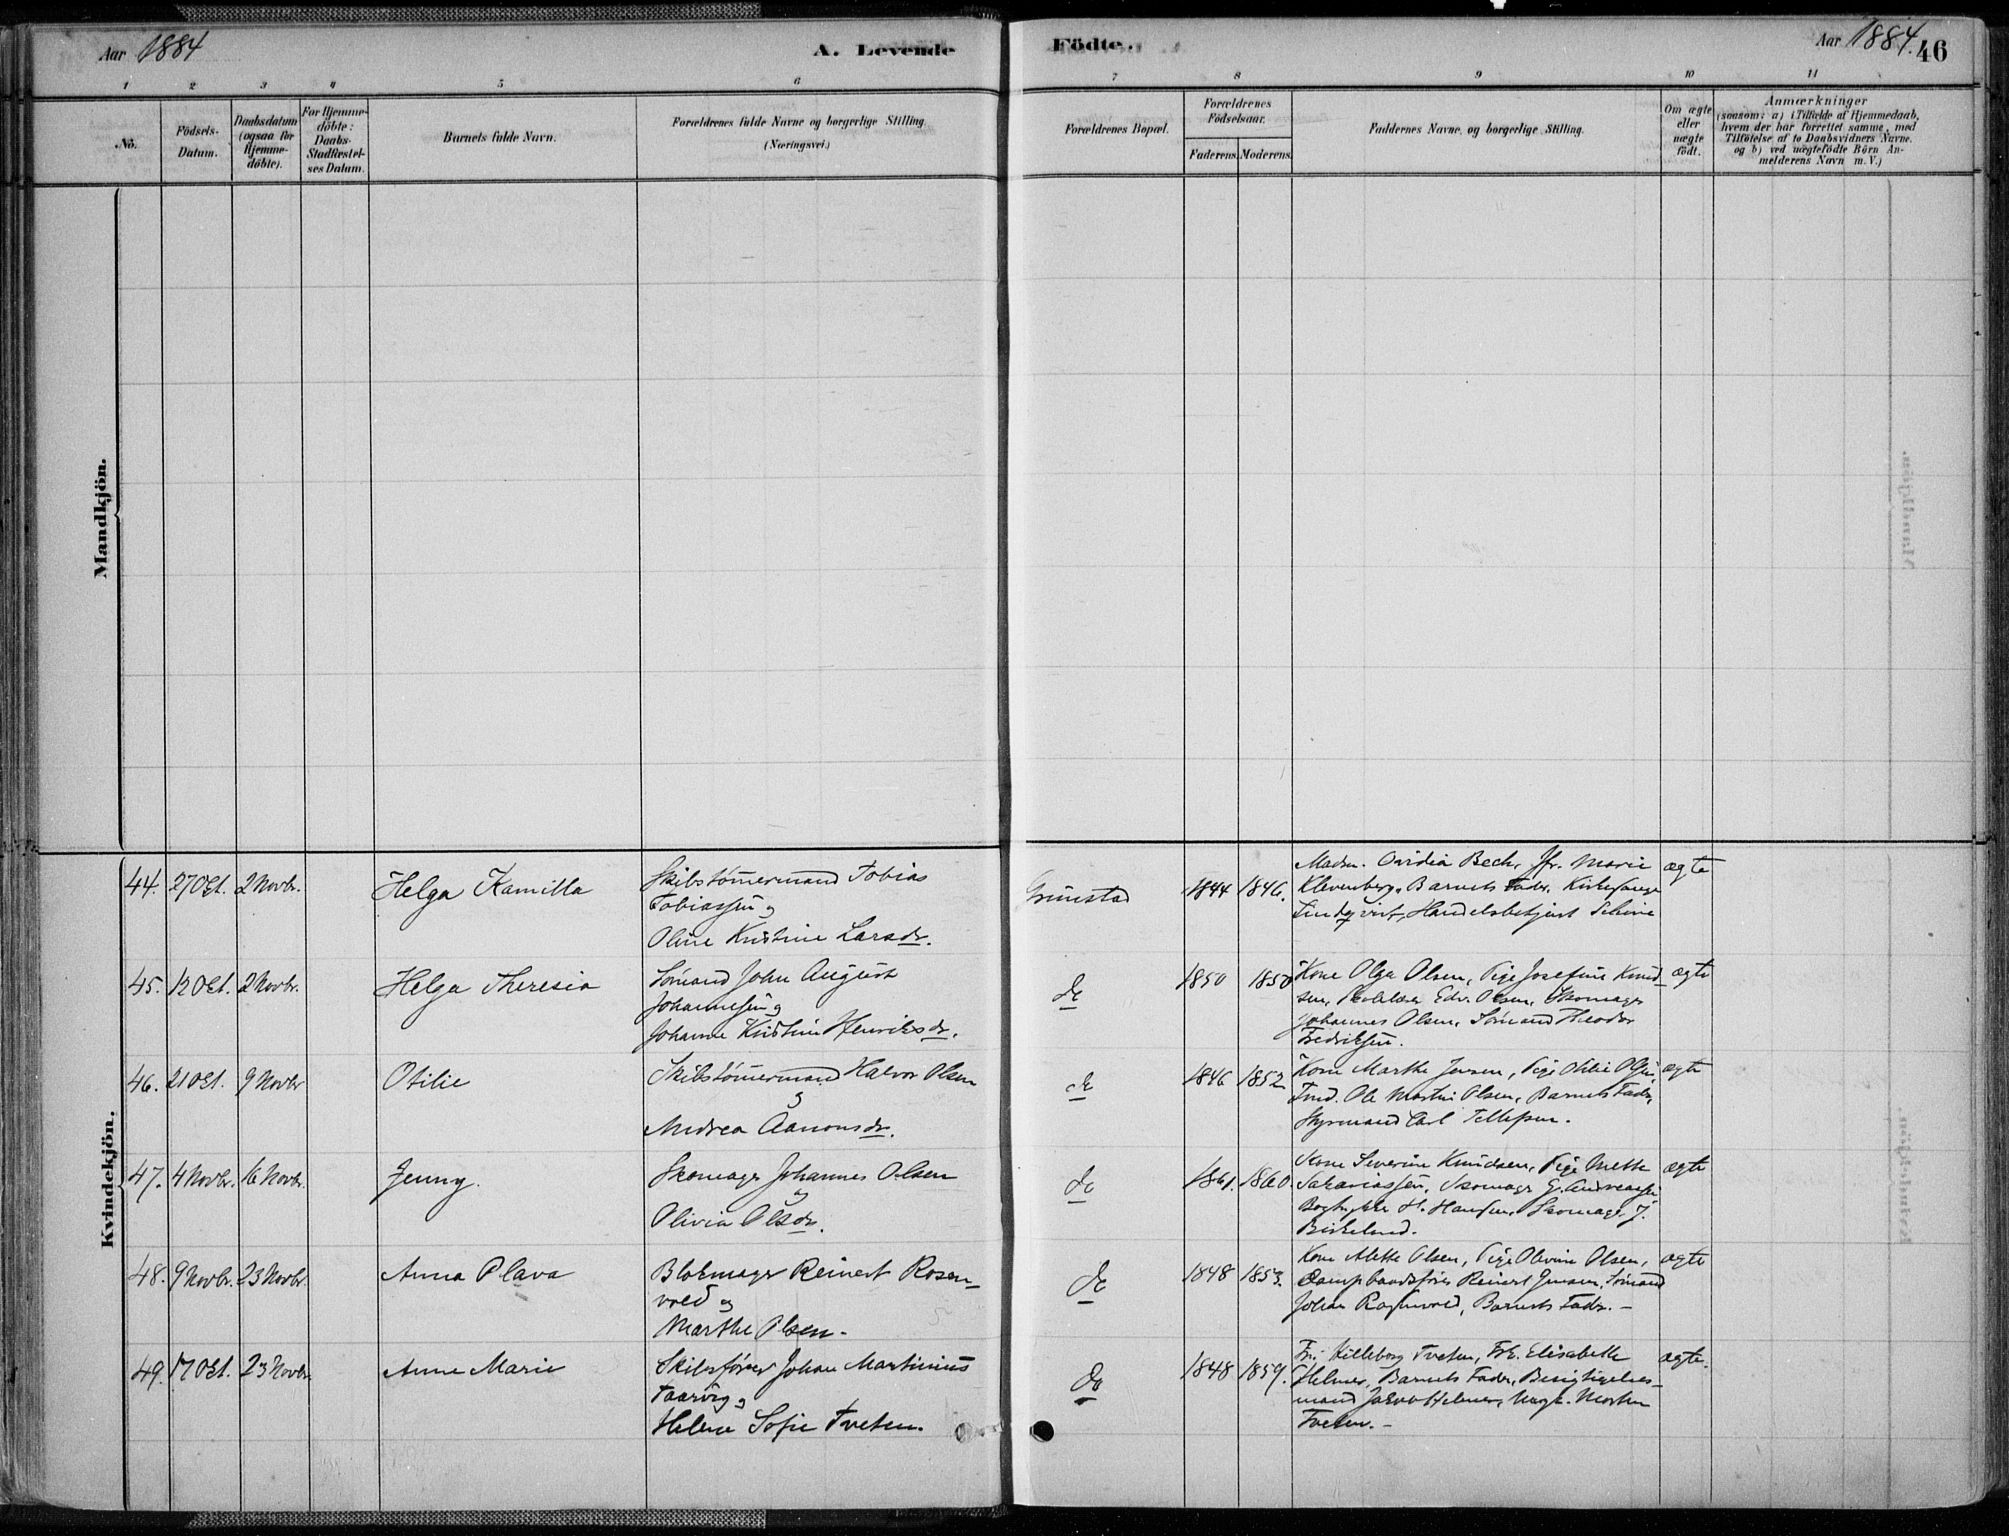 Aar 1884
A. Levende
Födte.
Aar 1884.
46
1 2 3 4 5 6 7 8 9 10 11
No.
Födsels-
Datum.
Daabsdatum
(ogsaa for
Hjemme-
döbte).
For Hjemme-
döbte:
Daabs-
Stadfæstel-
ses Datum.
Barnets fulde Navn.
Forældrenes fulde Navne og borgerlige Stilling.
(Næringsvei.)
Forældrenes Bopæl.
Forældrenes
Födselsaar.
Faderens. Moderens.
Faddernes Navne og borgerlige Stilling.
Om ægte
eller
uægte
födt.
Anmærkninger
(saasom: a) i Tilfælde af Hjemmedaab,
hvem der har forrettet samme, med
Tilföielse af to Daabsvidners Navne.
og b) ved uægtefödte Börn An-
melderens Navn m.V.)
Mandkjön.
Kvindekjön.
44. 27 Oct. 2 Novbr. Helga Kamilla
Skibstømmermand Tobias
Tobiassen og
Oline Kristine Larsdr.
Grimstad 1844 1846.
Madm. Ovidia Bech, Jfr. Marie
Klevenberg, Barnets Fader, Kirkesanger
Lindqvist, Handelsbetjent
ægte
45. 12 Oct. 2 Novbr. Helga Theresia
Sømand John August
Johannesen og
Johanne Kristine Henriksdr.
do 1850 1850
Kone Olga Olsen, Pige Josefine Knud-
sen, Edv. Olsen, Skomager
Johannes Olsen, Sømand Theodor
Fredriksen.
ægte
46. 21 Oct. 9 Novbr Otilie
Skibstømmermand Halvor Olsen
og
Andrea Aanonsdr.
do 1846 1852
Kone Marthe Jensen, Pige Otilie Olsen,
Tmd. Ole Martin Olsen, Barnets Fader,
Styrmand Carl Tellefsen.
ægte
47. 4 Novbr. 16 Novbr. Jenny.
Skomager Johannes Olsen
og
Olivia Olsdr.
do 1861. 1860.
Kone Severine Knudsen, Pige Mette
Sakariassen, Skomager G. Andreassen
Bogtrykker H. Hansen, Skomager J.
Birkelund.
ægte
48. 9 Novbr. 23 Novbr. Anna Olava
Blokmager Reinert Rosen-
vold og
Marthe Olsen.
do 1848 1853.
Kone Alette Olsen, Pige Olevine Olsen,
Dampbaadsfører Reinert Jensen, Sømand
Johan Rosenvold, Barnets Fader.
ægte
49. 17 Oct. 23 Novbr. Anne Marie
Skibsfører Johan Martinius
Taarvig og
Helene Sofie Tveten.
do 1848 1859.
Fru Hilleborg Tveten, Frk. Elisabeth
Helmer, Barnets Fader, Besigtigelses-
mand Jakob Helmer, Ungk. Morten
Tveten.
ægte.